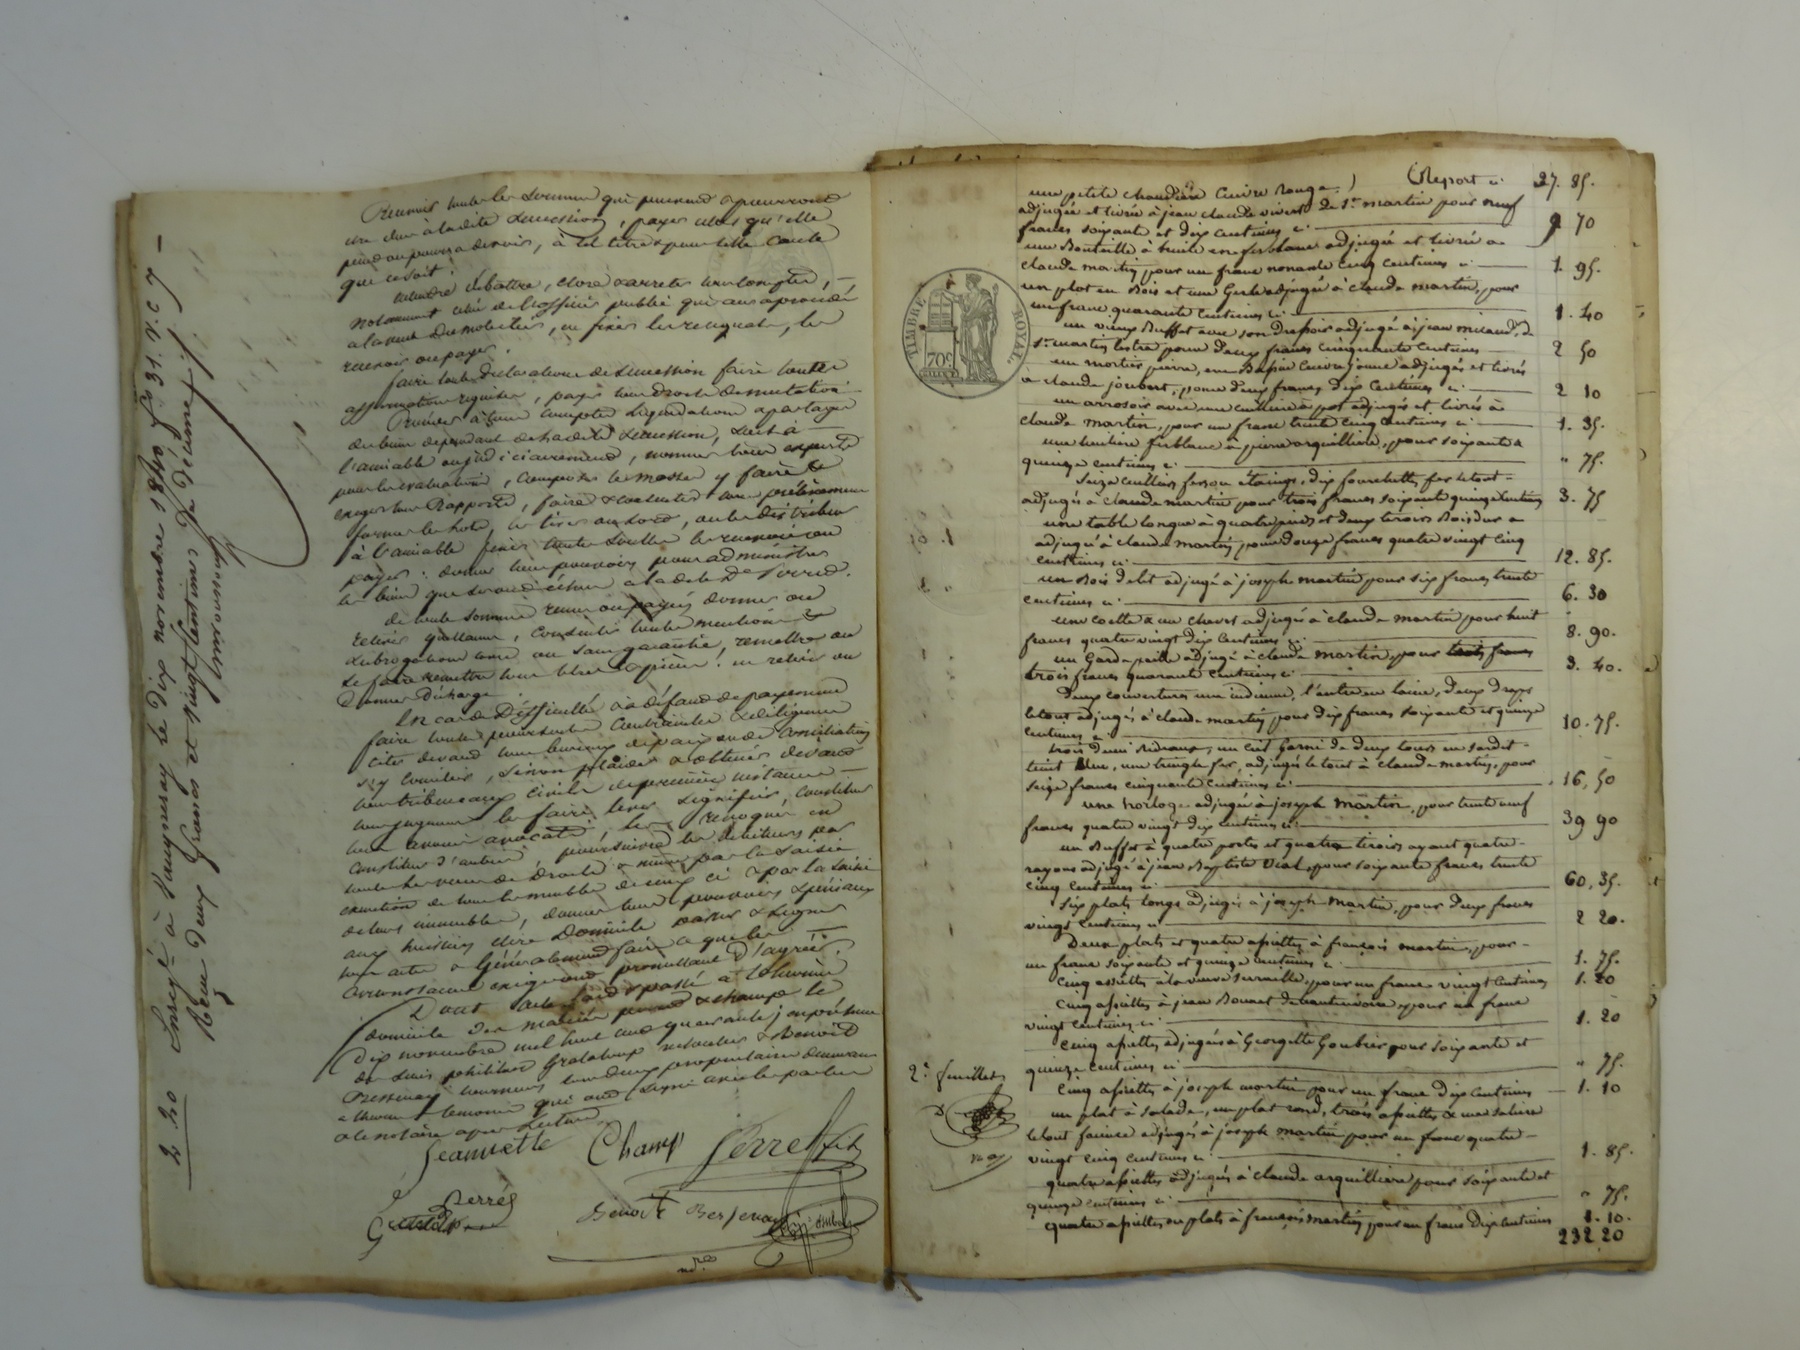 Recevoir toutes les sommes qui peuvent & pourront
être dues à ladite succession, payer celles qu'elle
peut ou pourra devoir, à tel titre & pour telle cause
que ce soit.
entendre débattre, clore & arrêter tous comptes,
notamment celui de l'officier public qui aura procédé
à la vente du mobilier, en fixer les reliquats, les
recevoir ou payer.
faire toutes déclarations de succession faire toutes
affirmations requises, payer tous droits de mutation
Procéder à tous comptes liquidations & partages
des biens dépendant de ladite succession, soit à
l'amiable ou judiciairement, nommer tous experts
pour les évaluations, composer les masses y faire
exiger tous Rapports, faire & contester tous prélèvements
former les lots, les tirer au sort, ou les distribuer
à l'amiable fixer toutes soultes les recevoir ou
payer: donner tous pouvoirs pour administrer
les biens qui seront échus à ladite De Perret.
de toutes sommes reçues ou payées donner ou
retirer quittance, consentir toutes mentions &
subrogations avec ou sans garantie, remettre ou
se faire remettre tous titres & pièces: en retirer ou
donner décharge
En cas de Difficultés & à défaut de payement
faire toutes poursuites contraintes & diligences
citer devant tous bureaux de paix ou de conciliation
s'y concilier, sinon plaider & obtenir devant
tous tribunaux civils de première instance
tous jugemens les faire lever signifier, constituer
tous avoués avocats, les révoquer en
constituer d'autres, poursuivre les débiteurs par
toutes les voies de droit & même par la saisie
exécution de tous les meubles de ceux ci & par la saisie
de leurs immeubles, donner tous pouvoirs spéciaux
aux huissiers élire Domicile passer & signer
tous actes & Généralement faire ce que les
circonstances exigeront promettant l'agréer.
Dont acte fait & passé à
domicile
Dix novembre mil huit cent quarante, en présence
de Louis & Benoit
Bessenay tous deux propriétaires demeurant
témoins qui ont signé avec les parties
& le notaire après lecture
Jeannette Champ Perret
Perret
Benoit Bessenay
nre
Enregé à Vaugneray le Dix novembre 1840 fo 31. v. c 7
Reçu deux francs et vingt centimes de Décime
2 20
Report ci 27.85.
une petite chaudière cuivre rouge
adjugée et livrée à jean claude vivert de St martin pour neuf
francs soixante et dix centimes ci 9 70
une Bouteille à huile en ferblanc adjugée et livrée a
claude martin pour un franc nonante cinq centimes ci 1. 95.
un plot en Bois et une Gerle adjugés à claude martin, pour
un franc quarante centimes ci 1. 40
un vieux Buffet avec son dressoir adjugé à jean de
St martin pour deux francs cinquante centimes 2 50
un mortier pierre, un Bassin cuivre jaune adjugés et livrés
à claude joubert, pour deux francs dix centimes ci 2 10
un arrosoir avec une cuillère à pot adjugés et livrés à
claude martin, pour un franc trente cinq centimes ci 1. 35.
une ferblanc à pierre arquillière, pour soixante &
quinze centimes ci " 75.
Seize cuillers fer ou étaings, dix fourchettes fer le tout
adjugés à claude martin pour trois francs soixante quinze centimes 3. 75
une table longue à quatre pieds et deux tiroirs Bois dur
adjugé à claude martin pour douze francs quatre vingt cinq
centimes ci 12. 85.
un Bois de lit adjugé à joseph martin pour six francs trente
centimes ci 6. 30
une coette & un chevet adjugés à claude martin pour huit
francs quatre vingt dix centimes ci 8. 90.
un Garde paille adjugé à claude martin pour trois francs
trois francs quarante centimes ci 3. 40.
Deux couvertures une indienne, l'autre en laine, deux draps
le tout adjugés à claude martin pour dix francs soixante et quinze
centimes ci 10. 75.
trois demi rideaux, un ciel Garni de deux tours en
teint bleu, une tringle fer, adjugés le tout à claude martin, pour
seize francs cinquante centimes ci 16,50
une horloge adjugée à joseph martin, pour trente neuf
francs quatre vingt dix centimes ci 39 90
un Buffet à quatre portes et quatre tiroirs ayant quatre
rayons adjugé à jean Baptiste Vial, pour soixante francs trente
cinq centimes ci 60,35.
Six plats longs adjugés à joseph martin, pour deux francs
vingt centimes ci 2 20.
Deux plats et quatre assiettes à françois martin, pour
un franc soixante et quinze centimes ci 1. 75.
Cinq assiettes à la veuve pour un franc vingt centimes 1. 20
Cinq assiettes à jean Bonnet de pour un franc
vingt centimes ci 1. 20
cinq assiettes adjugées à Georgette Goubier pour soixante et
quinze centimes ci " 75.
Cinq assiettes à joseph martin pour un franc dix centimes 1. 10
un plat à salade, un plat rond, trois assiettes & une salière
le tout faience adjugés à joseph martin pour un franc quatre
vingt cinq centimes ci 1. 85.
quatre assiettes adjugées à claude arquillière pour soixante et
quinze centimes ci " 75.
quatre assiettes ou plats à françois martin pour un franc dix centimes 1. 10.
232 20
TIMBRE ROYAL
70c
2e feuillet